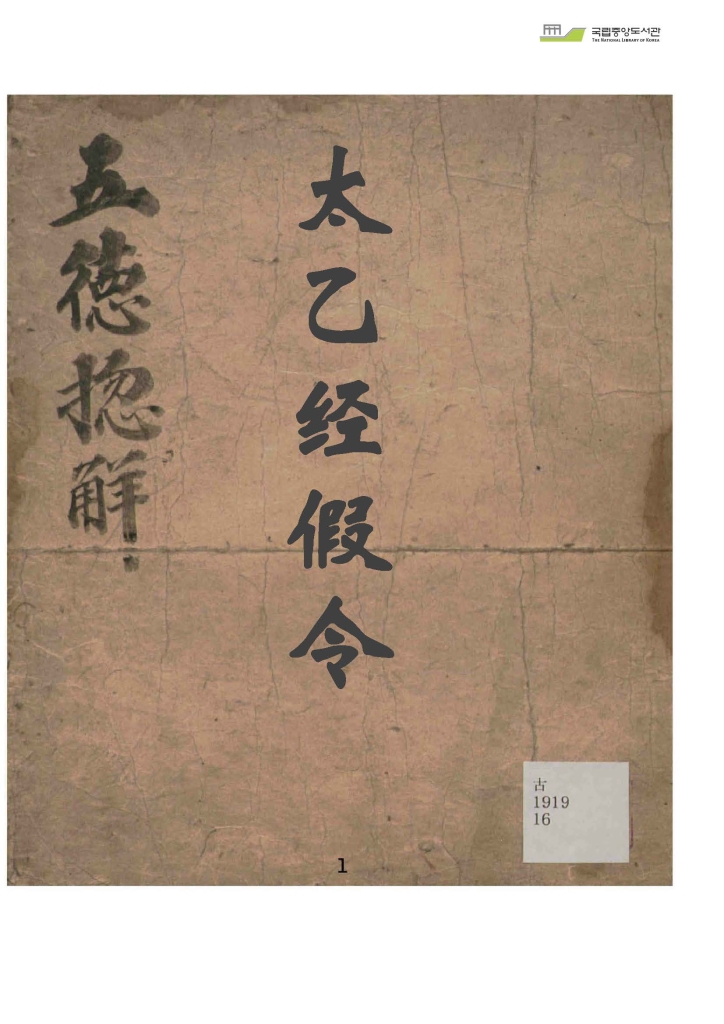 국립중앙도서관
THE NATIONAL LIBRARY OF KOREA
太乙经假令
五德揔解
古
1919
16
1